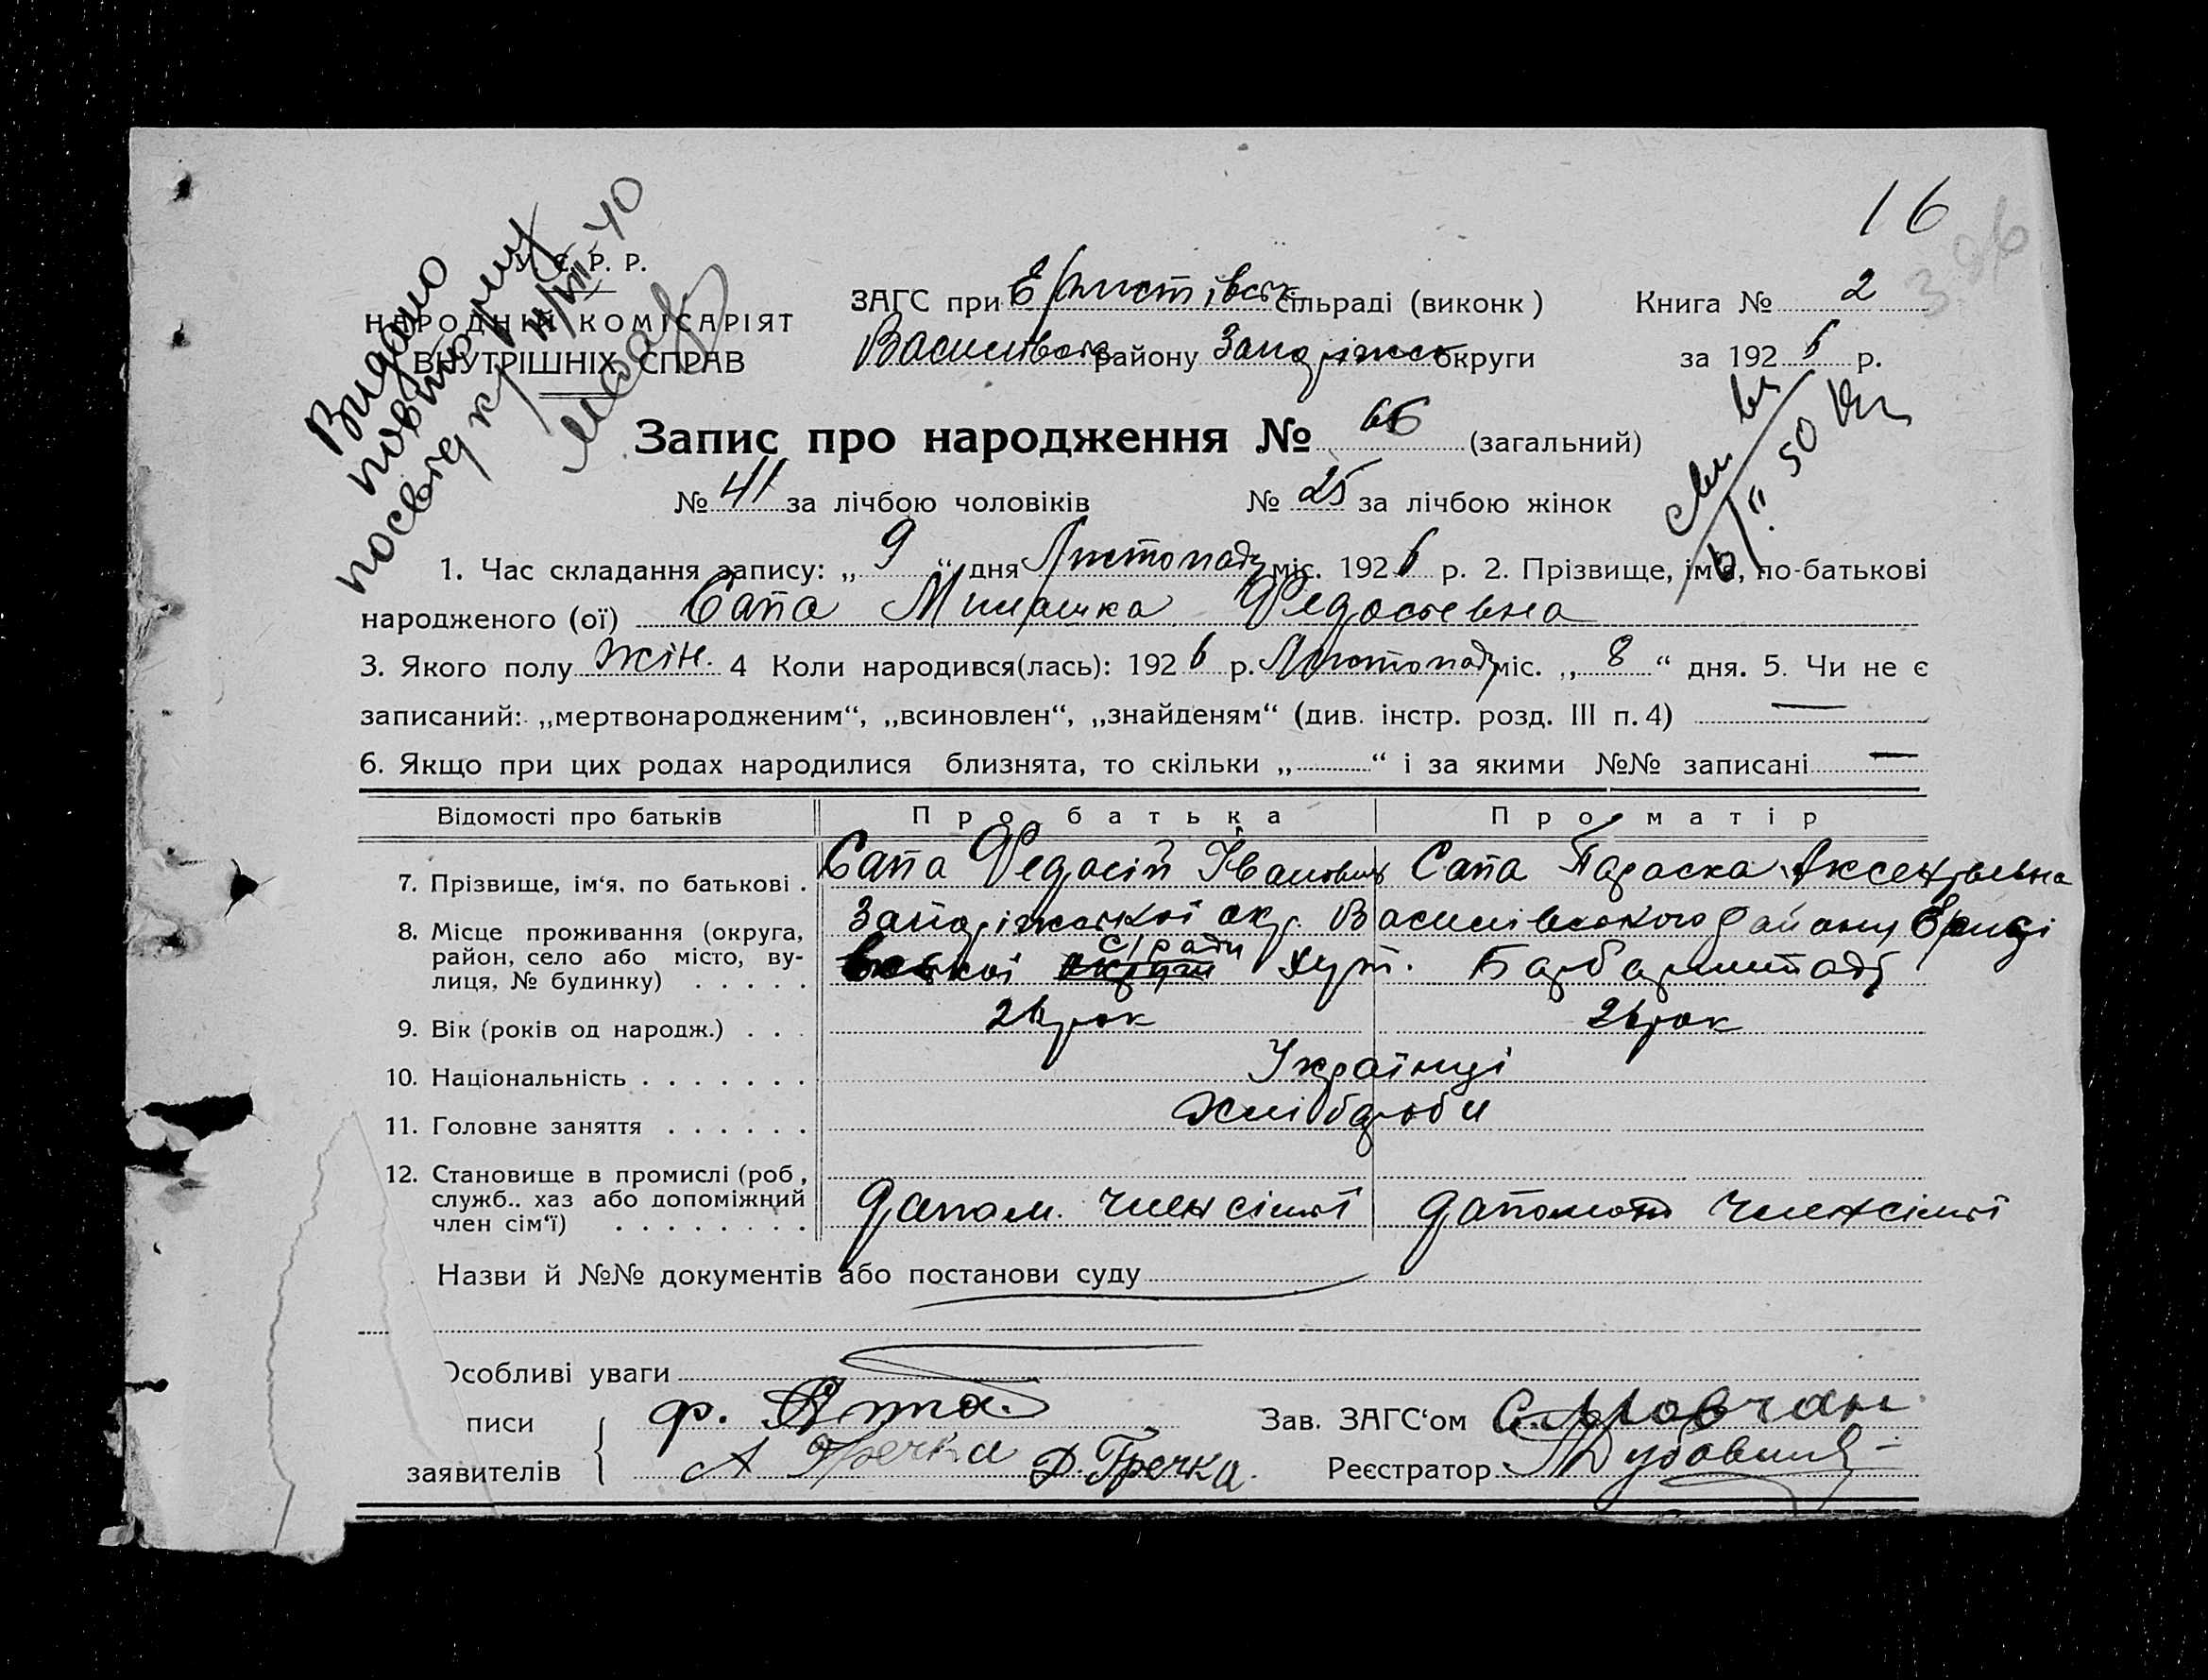 16
Видано
повторну
посвідку
У. С. Р. Р.
НАРОДНІЙ КОМІСАРІЯТ
ВНУТРІШНІХ СПРАВ
ЗАГС при Еристівськ сільраді (виконк)
Книга № 2
Василівськ району Запоріжськ округи
за 1926 р.
Запис про народження № 66 (загальний)
№ 41 за лічбою чоловіків № 25 за лічбою жінок
1. Час складання запису: „ 9 “ дня Листопаду міс. 1926 р. 2. Прізвище, ім'я, по-батькові
народженого (ої) Сапа Федосієвна
3. Якого полу жін. 4 Коли народився(лась): 1926 р. Листопаду міс. „ 8 “ дня. 5. Чи не є
записаний: „мертвонародженим“, „всиновлен“, „знайденям“ (див. інстр. розд. III п. 4) —
6. Якщо при цих родах народилися близнята, то скільки „ “ і за якими №№ записані —
Відомості про батьків Про батька Про матір
7. Прізвище, ім‘я, по батькові . Сапа Федосій Іванович Сапа Параска Аксентьевна
8. Місце проживання (округа, Запоріжської окр. Василівського району Еристі
район, село або місто, ву- вської с/ради хут.
лиця, № будинку) . . . . .
9. Вік (років од народж.) . . . 26 рок 26 рок
10. Національність . . . . . . . Українці
11. Головне заняття . . . . . . Хлібороби
12. Становище в промислі (роб,
служб.. хаз або допоміжний допом. член сімї допомот член сімї
член сім‘ї) . . . . . . . .
Назви й №№ документів або постанови суду
Особливі уваги
писи ф. Сапа. Зав. ЗАГС‘ом С. Мовчан
заявителів А Гречка Д. Гречка. Реєстратор